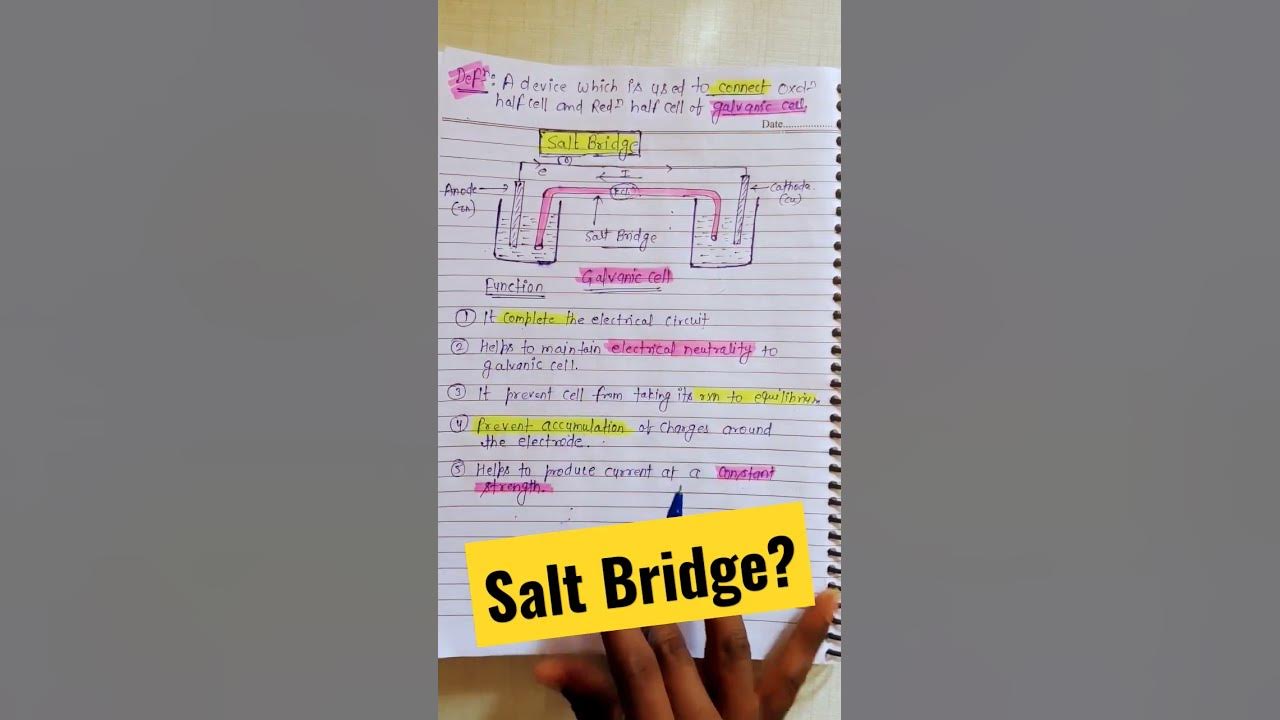 Defⁿ: A device which is used to connect oxdⁿ
half cell and Redⁿ half cell of galvanic cell.
Date
Salt Bridge
e
I
Anode
(Zn)
KCl
Cathode
(Cu)
Salt Bridge
Galvanic cell
Function
① It complete the electrical circuit
② Helps to maintain electrical neutrality to
galvanic cell.
③ It prevent cell from taking its rxn to equilibrium
④ Prevent accumulation of charges around
the electrode.
⑤ Helps to produce current at a constant
strength.
Salt Bridge?